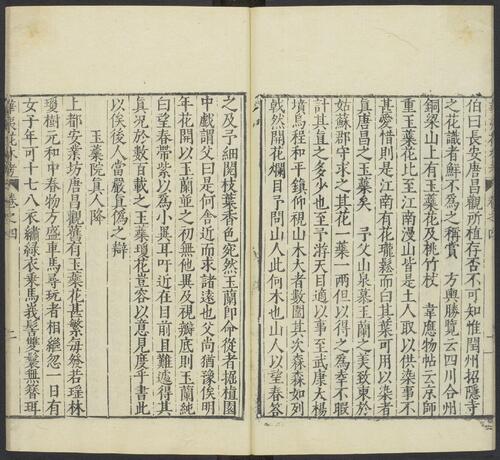 伯曰長安唐昌觀所植存否不可知惟閏州招隱寺
之花識者鮮不為之稱賞　方輿勝覽云四川合州
銅梁山上有玉蘂花及桃竹枝　韋應物帖云京師
重玉蘂花比至江南漫山皆是土人取以供染事不
甚愛惜則是江南有花瓏鬆而曰其葉可用以染者
真唐昌之玉蘂矣　予父山泉慕玉蘭之美致東於
姑蘇郡守求之其花一蘂一兩但以得之為幸不暇
計其直之多少也至予游天目適以事至武康大楊
墳烏程和平鎮仰視山木大者數圍其次森森如列
戟然開花爛目予問山人此何木也山人以望春答
之及予細閱枝葉香色宛然玉蘭即命從者掘植園
中戲謂父曰是何舍近而求諸遠也父尚猶豫俟明
年花開以玉蘭並之初無他異及視瓣底則玉蘭純
白望春帶紫以為小異耳吁近在目前且難遽得其
真况於數百載之玉蘂瓊花豈容以意見度乎書此
以俟後人當嚴真偽之辯
玉蘂院真人降
上都安業坊唐昌觀舊有玉蘂花甚繁每發若瑤林
瓊樹元和中春物方盛車馬尋玩者相繼忽一日有
女子年可十七八衣繡綠衣乘馬峩髻雙鬟無簪珥
卷之四
二